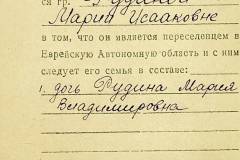 ся гр.
Марии Исааковне
в том, что он является переселенцем в
Еврейскую Автономную область и с ним
следует его семья в составе:
1. дочь Рудина Мария
Владимировна